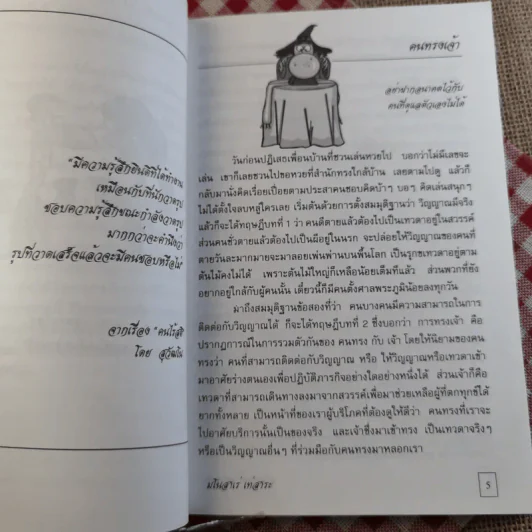 "มีความรู้สึกยินดีที่ได้ทำงาน
เหมือนกับที่นักวาดรูป
ชอบความรู้สึกขณะกำลังวาดรูป
มากกว่าจะคำนึงว่า
รูปที่วาดเสร็จแล้วจะมีคนชอบหรือไม่
จากเรื่อง "คนไร้สติ
โดย
คนทรงเจ้า
อย่าฝากอนาคตไว้กับ
คนที่ดูแลตัวเองไม่ได้
วันก่อนปฏิเสธเพื่อนบ้านที่ชวนเล่นหวยไป บอกว่าไม่มีเลขจะ
เล่น เขาก็เลยชวนไปขอหวยที่สำนักทรงใกล้บ้าน เลยตามไปดู แล้วก็
กลับมานั่งคิดเรื่อยเปื่อยตามประสาคนชอบคิดบ้าๆ บอๆ คิดเล่นสนุกๆ
ไม่ได้ตั้งใจลบหลู่ใครเลย เริ่มต้นด้วยการตั้งสมมุติฐานว่า วิญญาณมีจริง
แล้วก็จะได้ทฤษฎีบทที่ 1 ว่า คนดีตายแล้วต้องไปเป็นเทวดาอยู่ในสวรรค์
ส่วนคนชั่วตายแล้วต้องไปเป็นผีอยู่ในนรก จะปล่อยให้วิญญาณของคนที่
ตายวันละมากมายจะมาลอยเพ่นพ่านบนพื้นโลก เป็นรุกขเทวดาอยู่ตาม
ต้นไม้คงไม่ได้ เพราะต้นไม้ใหญ่ก็เหลือน้อยเต็มทีแล้ว ส่วนพวกที่ยัง
อยากอยู่ใกล้กับผู้คนนั้น เดี๋ยวนี้ก็มีคนตั้งศาลพระภูมิน้อยลงทุกวัน
มาถึงสมมุติฐานข้อสองที่ว่า คนบางคนมีความสามารถในการ
ติดต่อกับวิญญาณได้ ก็จะได้ทฤษฎีบทที่ 2 ซึ่งบอกว่า การทรงเจ้า คือ
ปรากฏการณ์ในการรวมตัวกันของ คนทรง กับ เจ้า โดยให้นิยามของคน
ทรงว่า คนที่สามารถติดต่อกับวิญญาณ หรือ ให้วิญญาณหรือเทวดาเข้า
มาอาศัยร่างตนเองเพื่อปฏิบัติภารกิจอย่างใดอย่างหนึ่งได้ ส่วนเจ้าก็คือ
เทวดาที่สามารถเดินทางลงมาจากสวรรค์เพื่อมาช่วยเหลือผู้ที่ตกทุกข์ได้
ยากทั้งหลาย เป็นหน้าที่ของเราผู้บริโภคที่ต้องดูให้ดีว่า คนทรงที่เราจะ
ไปอาศัยบริการนั้นเป็นของจริง และเจ้าซึ่งมาเข้าทรง เป็นเทวดาจริงๆ
หรือเป็นวิญญาณอื่นๆ ที่ร่วมมือกับคนทรงมาหลอกเรา
มโนสาเร่ เท่สาระ
5